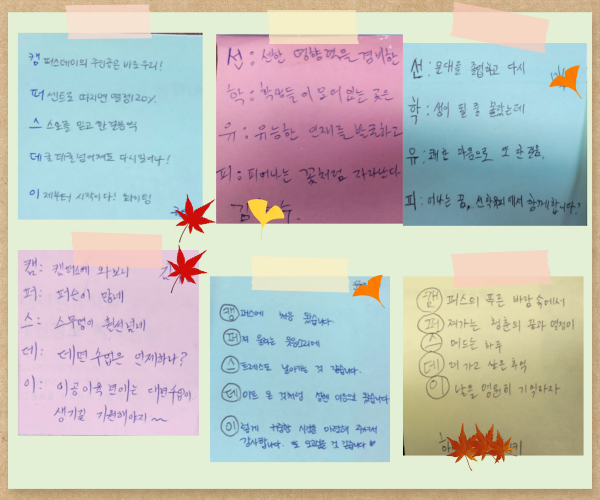 캠퍼스데이의 주인공은 바로 우리!
퍼센트로 따지면 열정 120%
스스로를 믿고 한걸음씩
데굴데굴 넘어져도 다시 일어나!
이제부터 시작이다! 화이팅
선: 선한 영향력을 겸비한
학: 학생들이 모여있는 곳은
유: 유능한 인재를 발굴하고
피: 피어나는 꽃처럼 자라난다.
김
선: 문대를 졸업하고 다시
학: 생이 될 줄 몰랐는데
유: 쾌한 마음으로 또 한걸음,
피: 어나는 꿈, 선학유피에서 함께합니다!
캠: 캠퍼스에 와보니
퍼: 퍼슨이 많네
스: 스무명이 훨씬넘네
데: 데면수업은 언제하나?
이: 이공이육년에는 대면수업이
생기길 기원해야지~~
캠퍼스에 처음 왔습니다.
퍼져 울리는 웃음소리에
스트레스도 날아가는 것 같습니다.
데이트 온 것처럼 설렌 마음으로 왔습니다
이렇게 귀중한 시간을 마련해 주셔서
감사합니다. 또 오고픈 것 같습니다 ♥
캠퍼스의 푸른 바람 속에서
퍼져가는 청춘의 꿈과 열정이
스며드는 하루
데려가고 싶은 추억
이 날을 영원히 기억하자